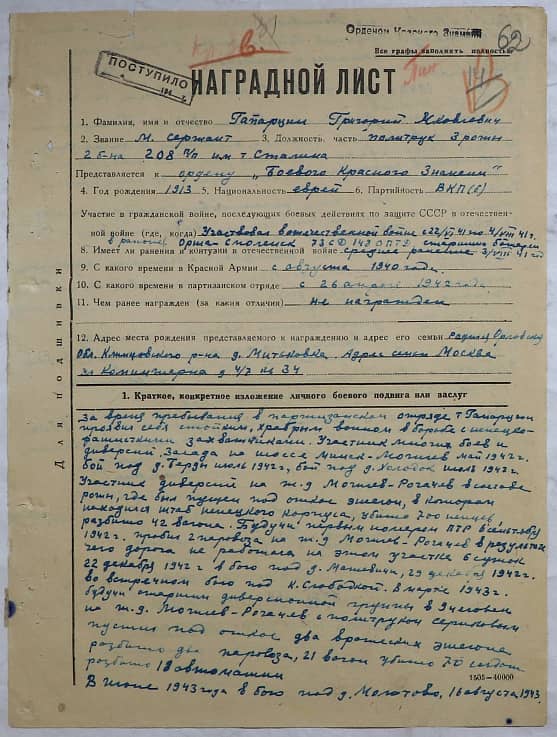 Орденом Красного Знамени
62
Все графы заполнять полностью
ПОСТУПИЛО
194 г.
НАГРАДНОЙ ЛИСТ
1. Фамилия, имя и отчество Гапарцин Григорий Яковлевич
2. Звание М. сержант 3. Должность, часть политрук 3 роты
2 б-на 208 п/п им т Сталина
Представляется к ордену "Боевого Красного Знамени"
4. Год рождения 1913 5. Национальность еврей 6. Партийность ВКП(б)
Участие в гражданской войне, последующих боевых действиях по защите СССР в отечествен-
ной войне (где, когда) Участвовал в отечественной войне с 22/VI 41 по 4/VIII 41 г.
в районе Орша-Смоленск 73 СД 148 ОПТД
8. Имеет ли ранения и контузии в отечественной войне среднее ранение 3/VIII 41 год
9. С какого времени в Красной Армии с августа 1940 года.
10. С какого времени в партизанском отряде с 26 апреля 1942 года
11. Чем ранее награжден (за какие отличия) не награжден
12. Адрес места рождения представляемого к награждению и адрес его семьи родился Орловской
Обл. Клинцовского р-на д. Митьковка. Адрес семьи Москва
ул Коммунерна д 4/7 кв 34
Для подшивки
1. Краткое, конкретное изложение личного боевого подвига или заслуг
За время пребывания в партизанском отряде т Гапарцин
проявил себя стойким, храбрым воином в борьбе с немецко-
фашистскими захватчиками. Участник многих боев и
диверсий. Засада на шоссе Минск-Могилев май 1942 г.
бой под д. Терды июль 1942 г, бой под д. Холодок июль 1942 г.
Участник диверсии на ж.д Могилев-Рогачев в составе
роты, где был пущен под откос эшелон, в котором
находился штаб немецкого корпуса, убито 200 немцев,
разбито 42 вагона. Будучи первым номером ПТР в сентябре
1942 г. пробил 2 паровоза на ж.д Могилев-Рогачев в результате
чего дорога не работала на этом участке 6 суток
22 декабря 1942 г в бою под д. Машевичи, 29 декабря 1942 г.
во встречном бою под К. Слободкой. В марте 1943 г.
будучи старшим диверсионной группы в 9 человек
на ж.д. Могилев-Рогачев с политруком
пустил под откос два вражеских эшелона
разбито два паровоза, 21 вагон убито 70 солдат
разбито 18 автомашин
1505-40000
В июне 1943 года в бою под д. Молотово, 16 августа 1943